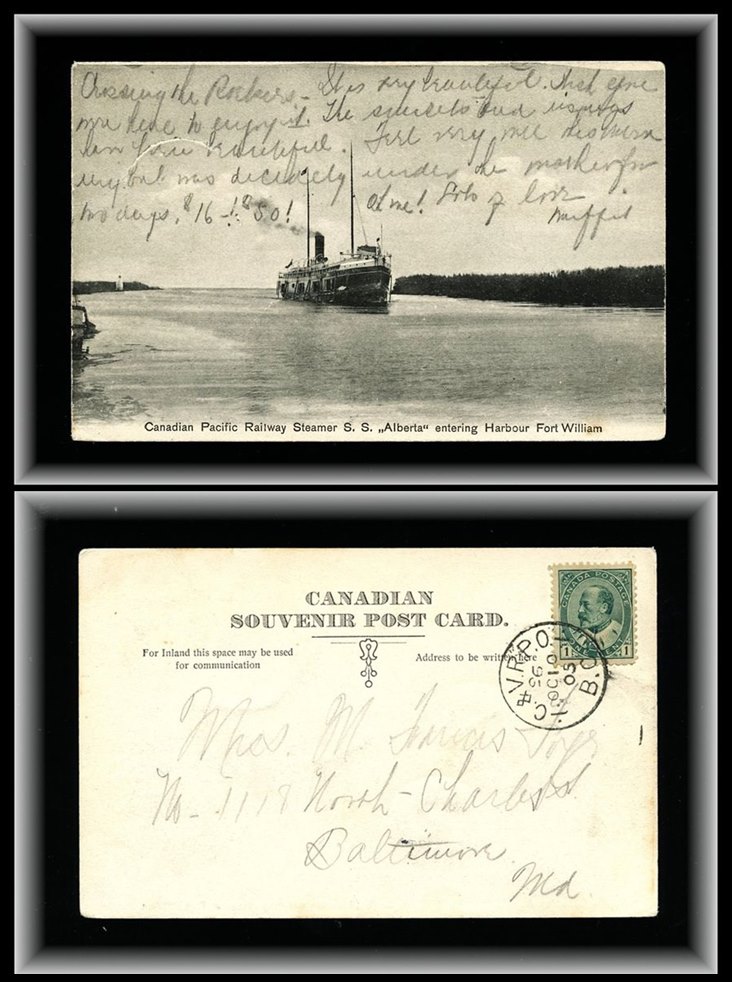 Crossing the Rockies - It is very beautiful.
more here to enjoy it. The sunsets and
beautiful. Feel very well
but was decidedly under the weather for
two days. $16 - ! $50! Ah me! Lots of love
Muffit
Canadian Pacific Railway Steamer S. S. „Alberta“ entering Harbour Fort William
CANADIAN
SOUVENIR POST CARD.
For Inland this space may be used
for communication
Address to be written here
CANADA POSTAGE
1 CENT 1
C & V.R.P.O.
26
OC 10
05
B.C.
Miss. M. Francis
No - 1118 North - Charles St
Baltimore
Md.